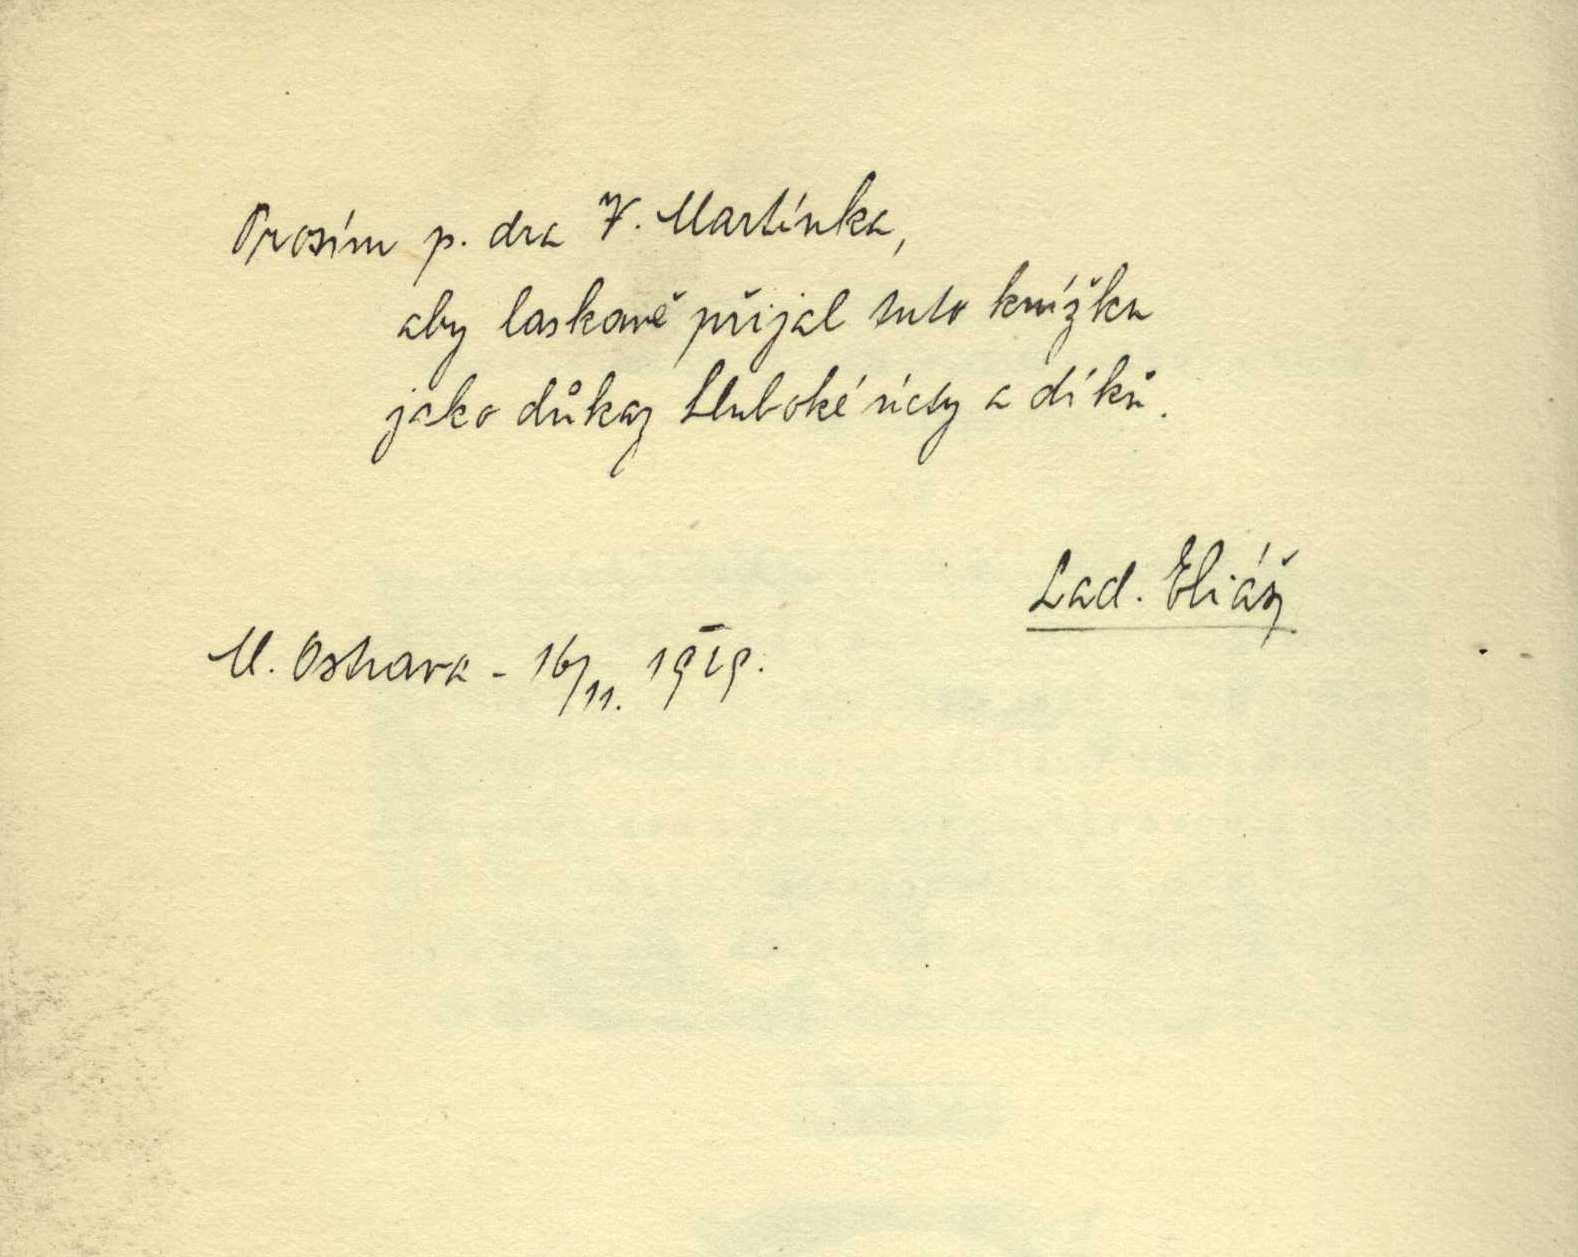 Prosím p. dra V. Martínka,
aby laskavě přijal tuto knížku
jako důkaz hluboké úcty a díků.
Lad. Eliáš
M. Ostrava - 16/11. 1929.